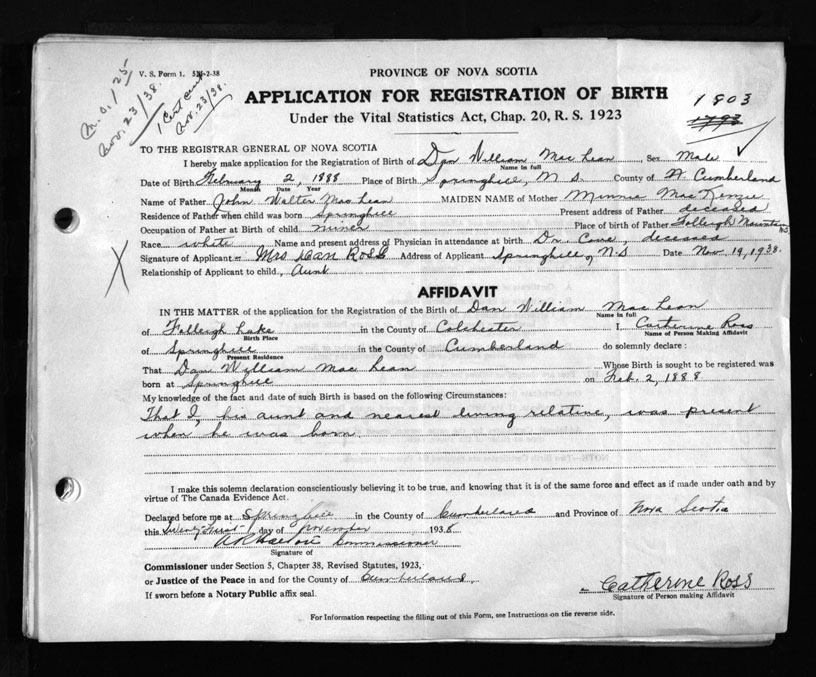 V. S. Form 1. 5M-2-38
Nov. 23/38.
1 Cert
Nov. 23/38.
PROVINCE OF NOVA SCOTIA
APPLICATION FOR REGISTRATION OF BIRTH
1803
1793
Under the Vital Statistics Act, Chap. 20, R. S. 1923
TO THE REGISTRAR GENERAL OF NOVA SCOTIA
I hereby make application for the Registration of Birth of Dan William Mac Lean Sex Male
Name in full
Date of Birth February 2, 1888 Place of Birth Springhill, N S. County of Cumberland
Month Date Year
Name of Father John Walter Mac Lean MAIDEN NAME of Mother Minnie MacKenzie
Residence of Father when child was born Springhill Present address of Father deceased
Occupation of Father at Birth of child miner Place of birth of Father Folleigh Mountain NS
Race white Name and present address of Physician in attendance at birth Dr. Cove, deceased
Signature of Applicant Mrs Dan Ross Address of Applicant Springhill, N.S Date Nov 19, 1938.
Relationship of Applicant to child, Aunt
AFFIDAVIT
IN THE MATTER of the application for the Registration of the Birth of Dan William Mac Lean
Name in full
of Folleigh Lake in the County of Colchester I, Catherine Ross
Birth Place Name of Person Making Affidavit
of Springhill in the County of Cumberland do solemnly declare :
Present Residence
That Dan William Mac Lean Whose Birth is sought to be registered was
born at Springhill on Feb. 2, 1888
My knowledge of the fact and date of such Birth is based on the following Circumstances:
That I, his aunt and nearest living relative, was present
when he was born.
I make this solemn declaration conscientiously believing it to be true, and knowing that it is of the same force and effect as if made under oath and by
virtue of The Canada Evidence Act.
Declared before me at Springhill in the County of Cumberland and Province of Nova Scotia
this Twenty First day of November 1938
Commissioner
Signature of
Commissioner under Section 5, Chapter 38, Revised Statutes, 1923,
or Justice of the Peace in and for the County of Cumberland
If sworn before a Notary Public affix seal.
Catherine Ross
Signature of Person making Affidavit
For Information respecting the filling out of this Form, see Instructions on the reverse side.